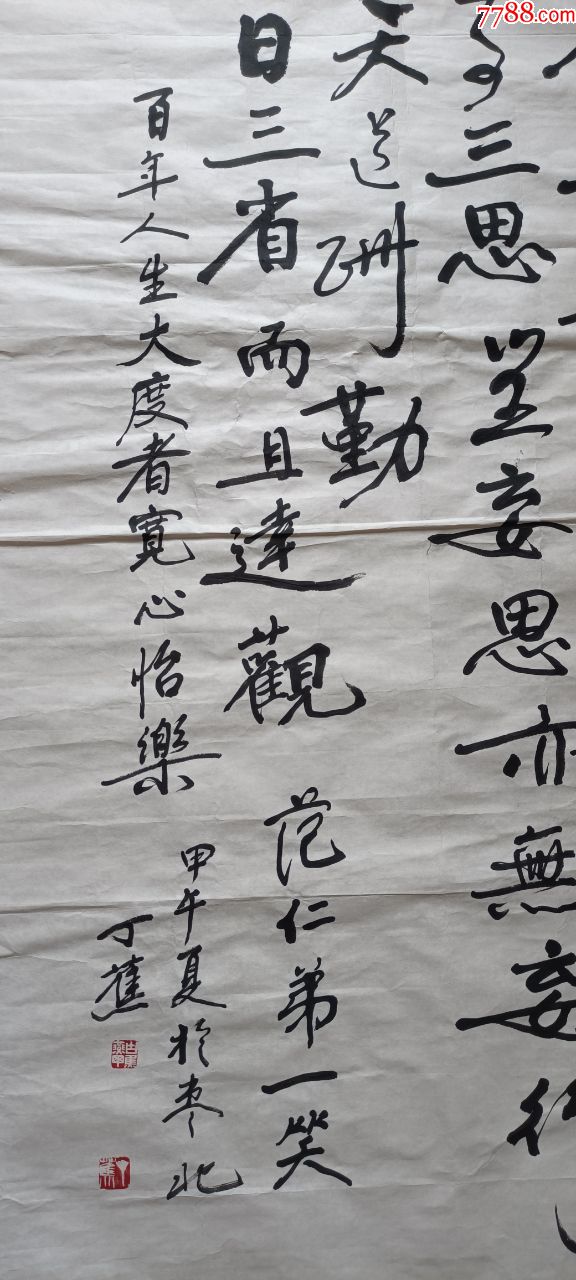 7788.com
三思妄思亦無妄
天道酬勤
日三省而且達觀
范仁弟一笑
百年人生大度者寬心怡樂
甲午夏於枣北
丁蕉